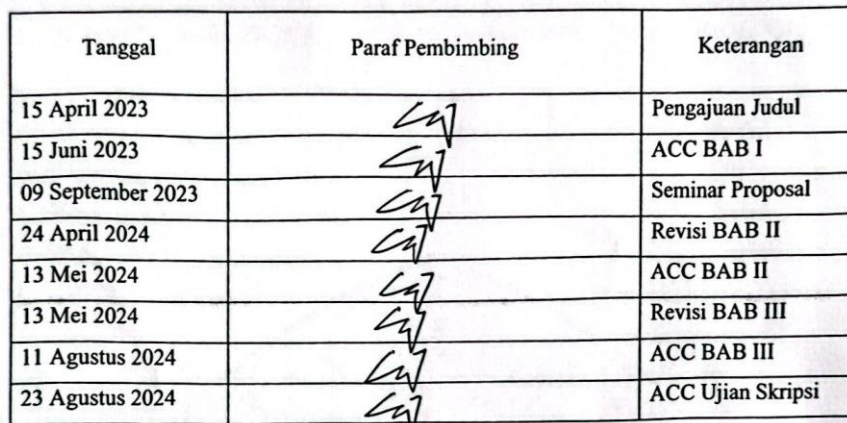 Tanggal Paraf Pembimbing Keterangan
15 April 2023 Pengajuan Judul
15 Juni 2023 ACC BAB I
09 September 2023 Seminar Proposal
24 April 2024 Revisi BAB II
13 Mei 2024 ACC BAB II
13 Mei 2024 Revisi BAB III
11 Agustus 2024 ACC BAB III
23 Agustus 2024 ACC Ujian Skripsi